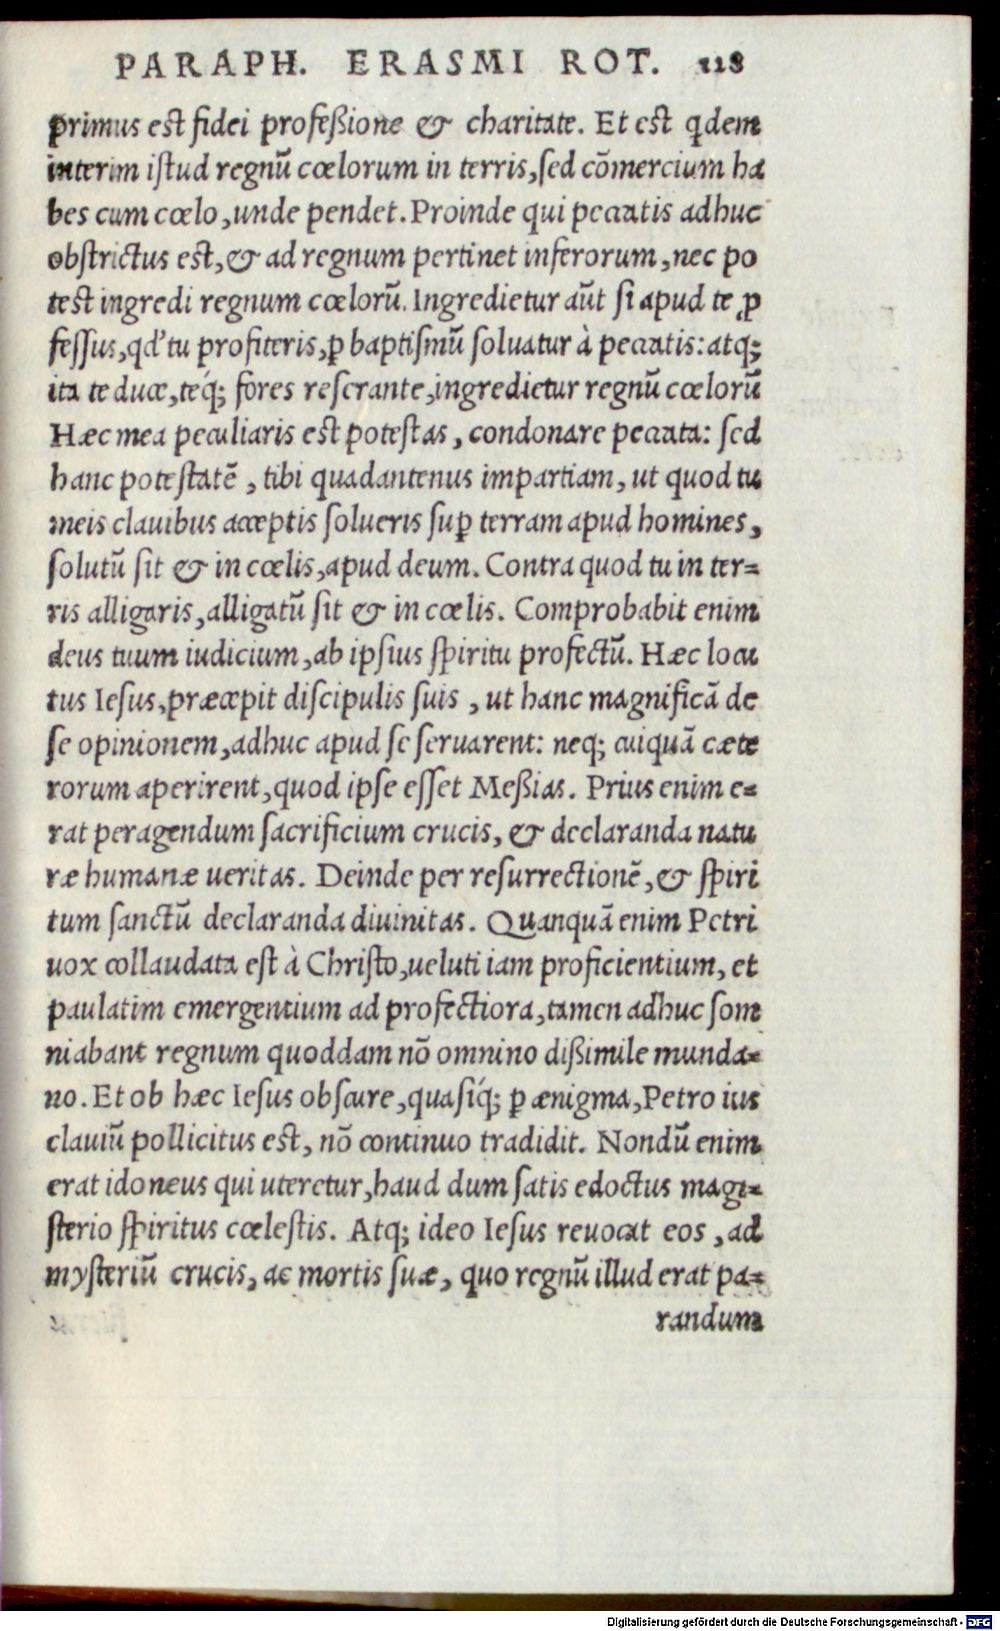 PARAPH. ERASMI ROT. 118
primus est fidei profeßione & charitate. Et est qdem
interim istud regnū cœlorum in terris, sed cōmercium ha
bes cum cœlo, unde pendet. Proinde qui peccatis adhuc
obstrictus est, & ad regnum pertinet inferorum, nec po
test ingredi regnum cœlorū. Ingredietur aūt si apud te ꝓ
fessus, qd' tu profiteris, ꝑ baptismū soluatur à peccatis: atq;
ita te duce, teq́; fores reserante, ingredietur regnū cœlorū
Hæc mea peculiaris est potestas, condonare peccata: sed
hanc potestatē, tibi quadantenus impartiam, ut quod tu
meis clauibus acceptis solueris suꝑ terram apud homines,
solutū sit & in cœlis, apud deum. Contra quod tu in ter=
ris alligaris, alligatū sit & in cœlis. Comprobabit enim
deus tuum iudicium, ab ipsius spiritu profectū. Hæc locu
tus Iesus, præcepit discipulis suis, ut hanc magnificā de
se opinionem, adhuc apud se seruarent: neq; cuiquā cæte
rorum aperirent, quod ipse esset Meßias. Prius enim e=
rat peragendum sacrificium crucis, & declaranda natu
ræ humanæ ueritas. Deinde per resurrectionē, & spiri
tum sanctū declaranda diuinitas. Quanquā enim Petri
uox collaudata est à Christo, ueluti iam proficientium, et
paulatim emergentium ad profectiora, tamen adhuc som
niabant regnum quoddam nō omnino dißimile munda=
no. Et ob hæc Iesus obscure, quasiq́; ꝑ ænigma, Petro ius
clauiū pollicitus est, nō continuo tradidit. Nondū enim
erat idoneus qui uteretur, haud dum satis edoctus magi=
sterio spiritus cœlestis. Atq; ideo Iesus reuocat eos, ad
mysteriū crucis, ac mortis suæ, quo regnū illud erat pa=
randum
Digitalisierung gefördert durch die Deutsche Forschungsgemeinschaft - DFG